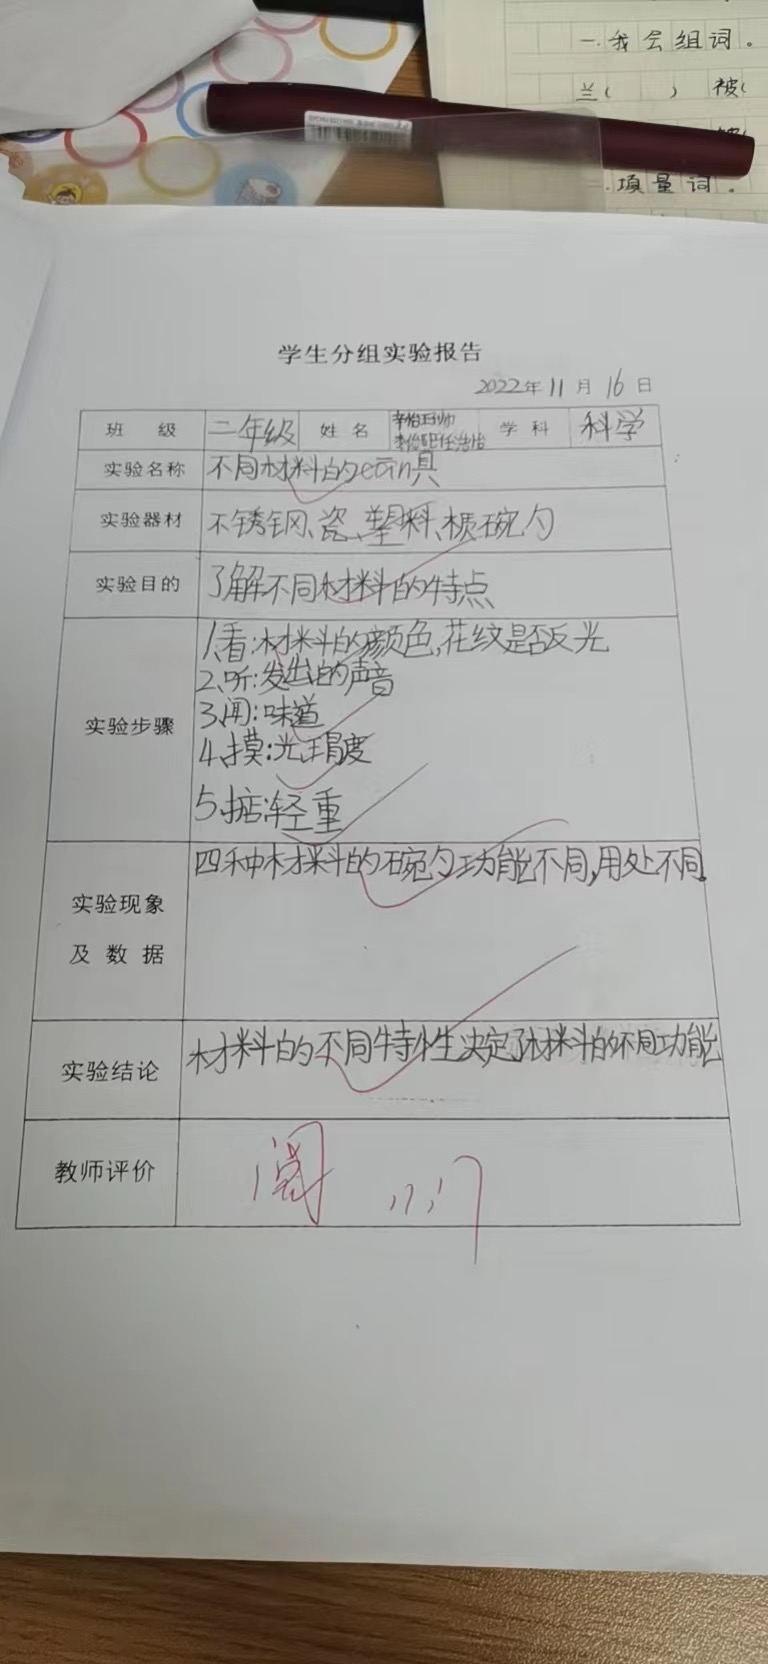 一.我会组词。
兰(  ) 被(
一.填量词。
学生分组实验报告
2022年11月16日
班 级 二年级 姓 名 学 科 科学
实验名称 不同材料的cān具
实验器材 不锈钢、瓷、塑料、木质碗勺
实验目的 了解不同材料的特点
实验步骤
1、看:材料的颜色,花纹是否反光
2、听:发出的声音
3、闻:味道
4、摸:光滑度
5、掂:轻重
实验现象
及 数 据
四种材料的碗勺功能不同,用处不同。
实验结论 材料的不同特性决定了材料的不同功能
教师评价 阅 11.17